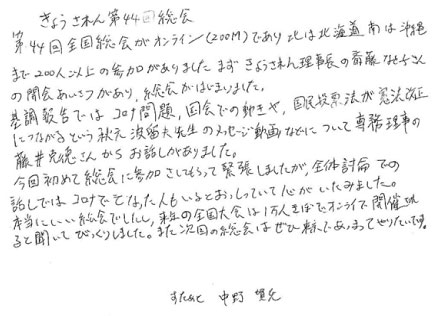 きょうされん第44回総会
第44回全国総会がオンライン(ZOOM)であり北は北海道南は沖縄
まで200人以上の参加がありました まずきょうされん理事長の斎藤なをこさん
の開会あいさつがあり、総会がはじまりました。
基調報告ではコロナ問題、国会での動きや、国民投票法が憲法改正
につながるという秋元波留夫先生のメッセージ動画などについて専務理事の
藤井克徳さんからお話しがありました。
今回初めて総会に参加させてもらって緊張しましたが、全体討論での
話しではコロナで亡くなった人もいるとおっしゃっていて心がいたみました。
本当にいい総会でしたし、来年の全国大会は1万人きぼでオンライで開催
ると聞いてびっくりしました。また次回の総会はぜひ東京であつまってやりたいです。
中野